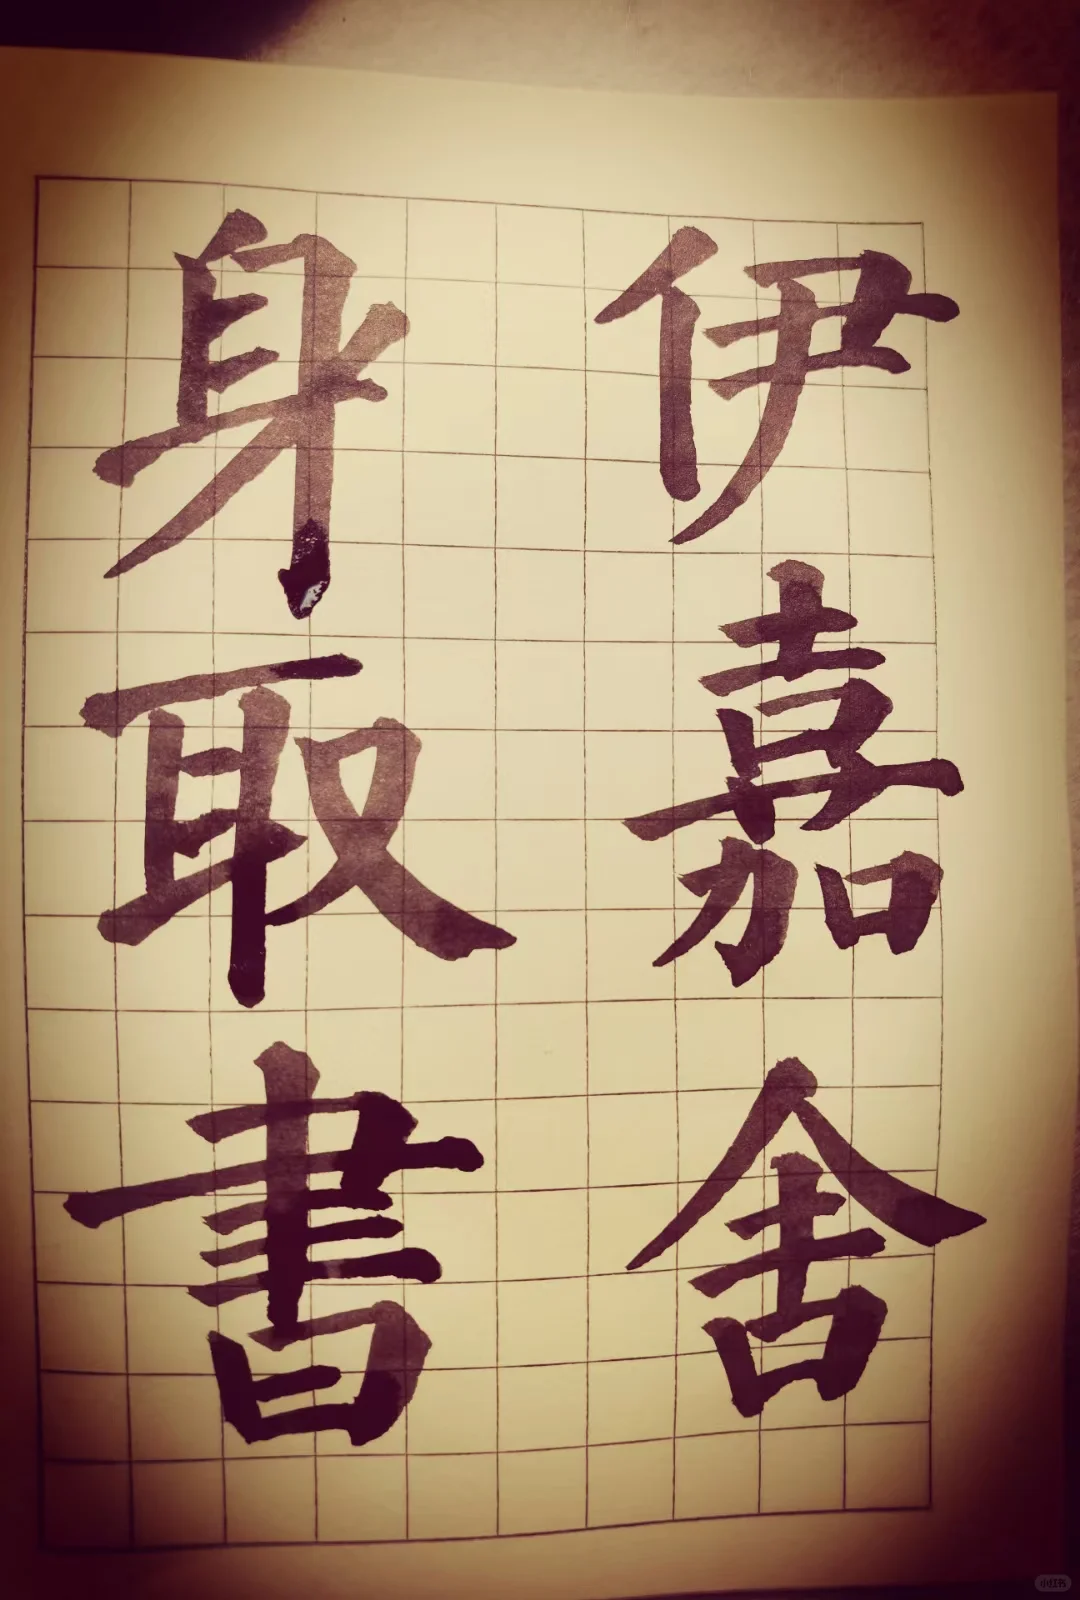 伊嘉舍
身取書
小红书